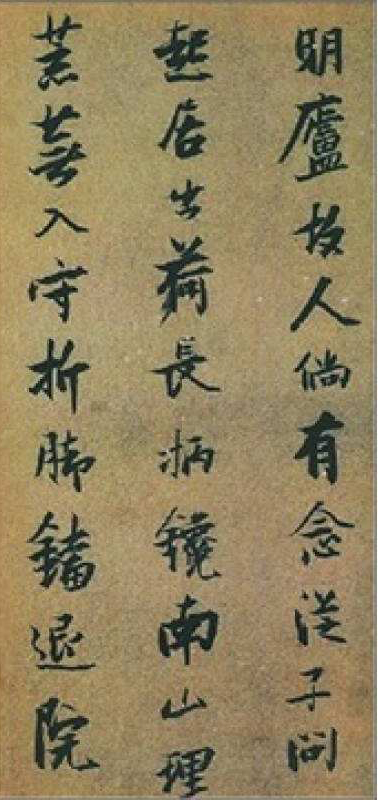 明廬故人倘有念從子問
起居出荷長柄鑱南山理
荒蕪入守折腳鐺退院